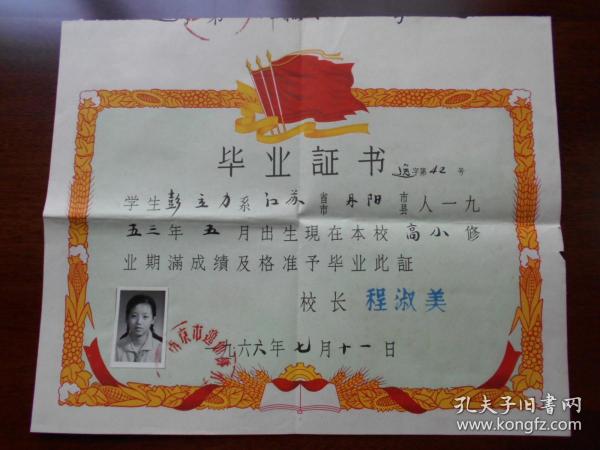 毕业証书
选字第42号
学生彭立力系江苏省市丹阳市县人一九
五三年五月出生現在本校高小修
业期滿成績及格准予毕业此証
校长 程淑美
一九六六年七月十一日
孔夫子旧書网
www.kongfz.com